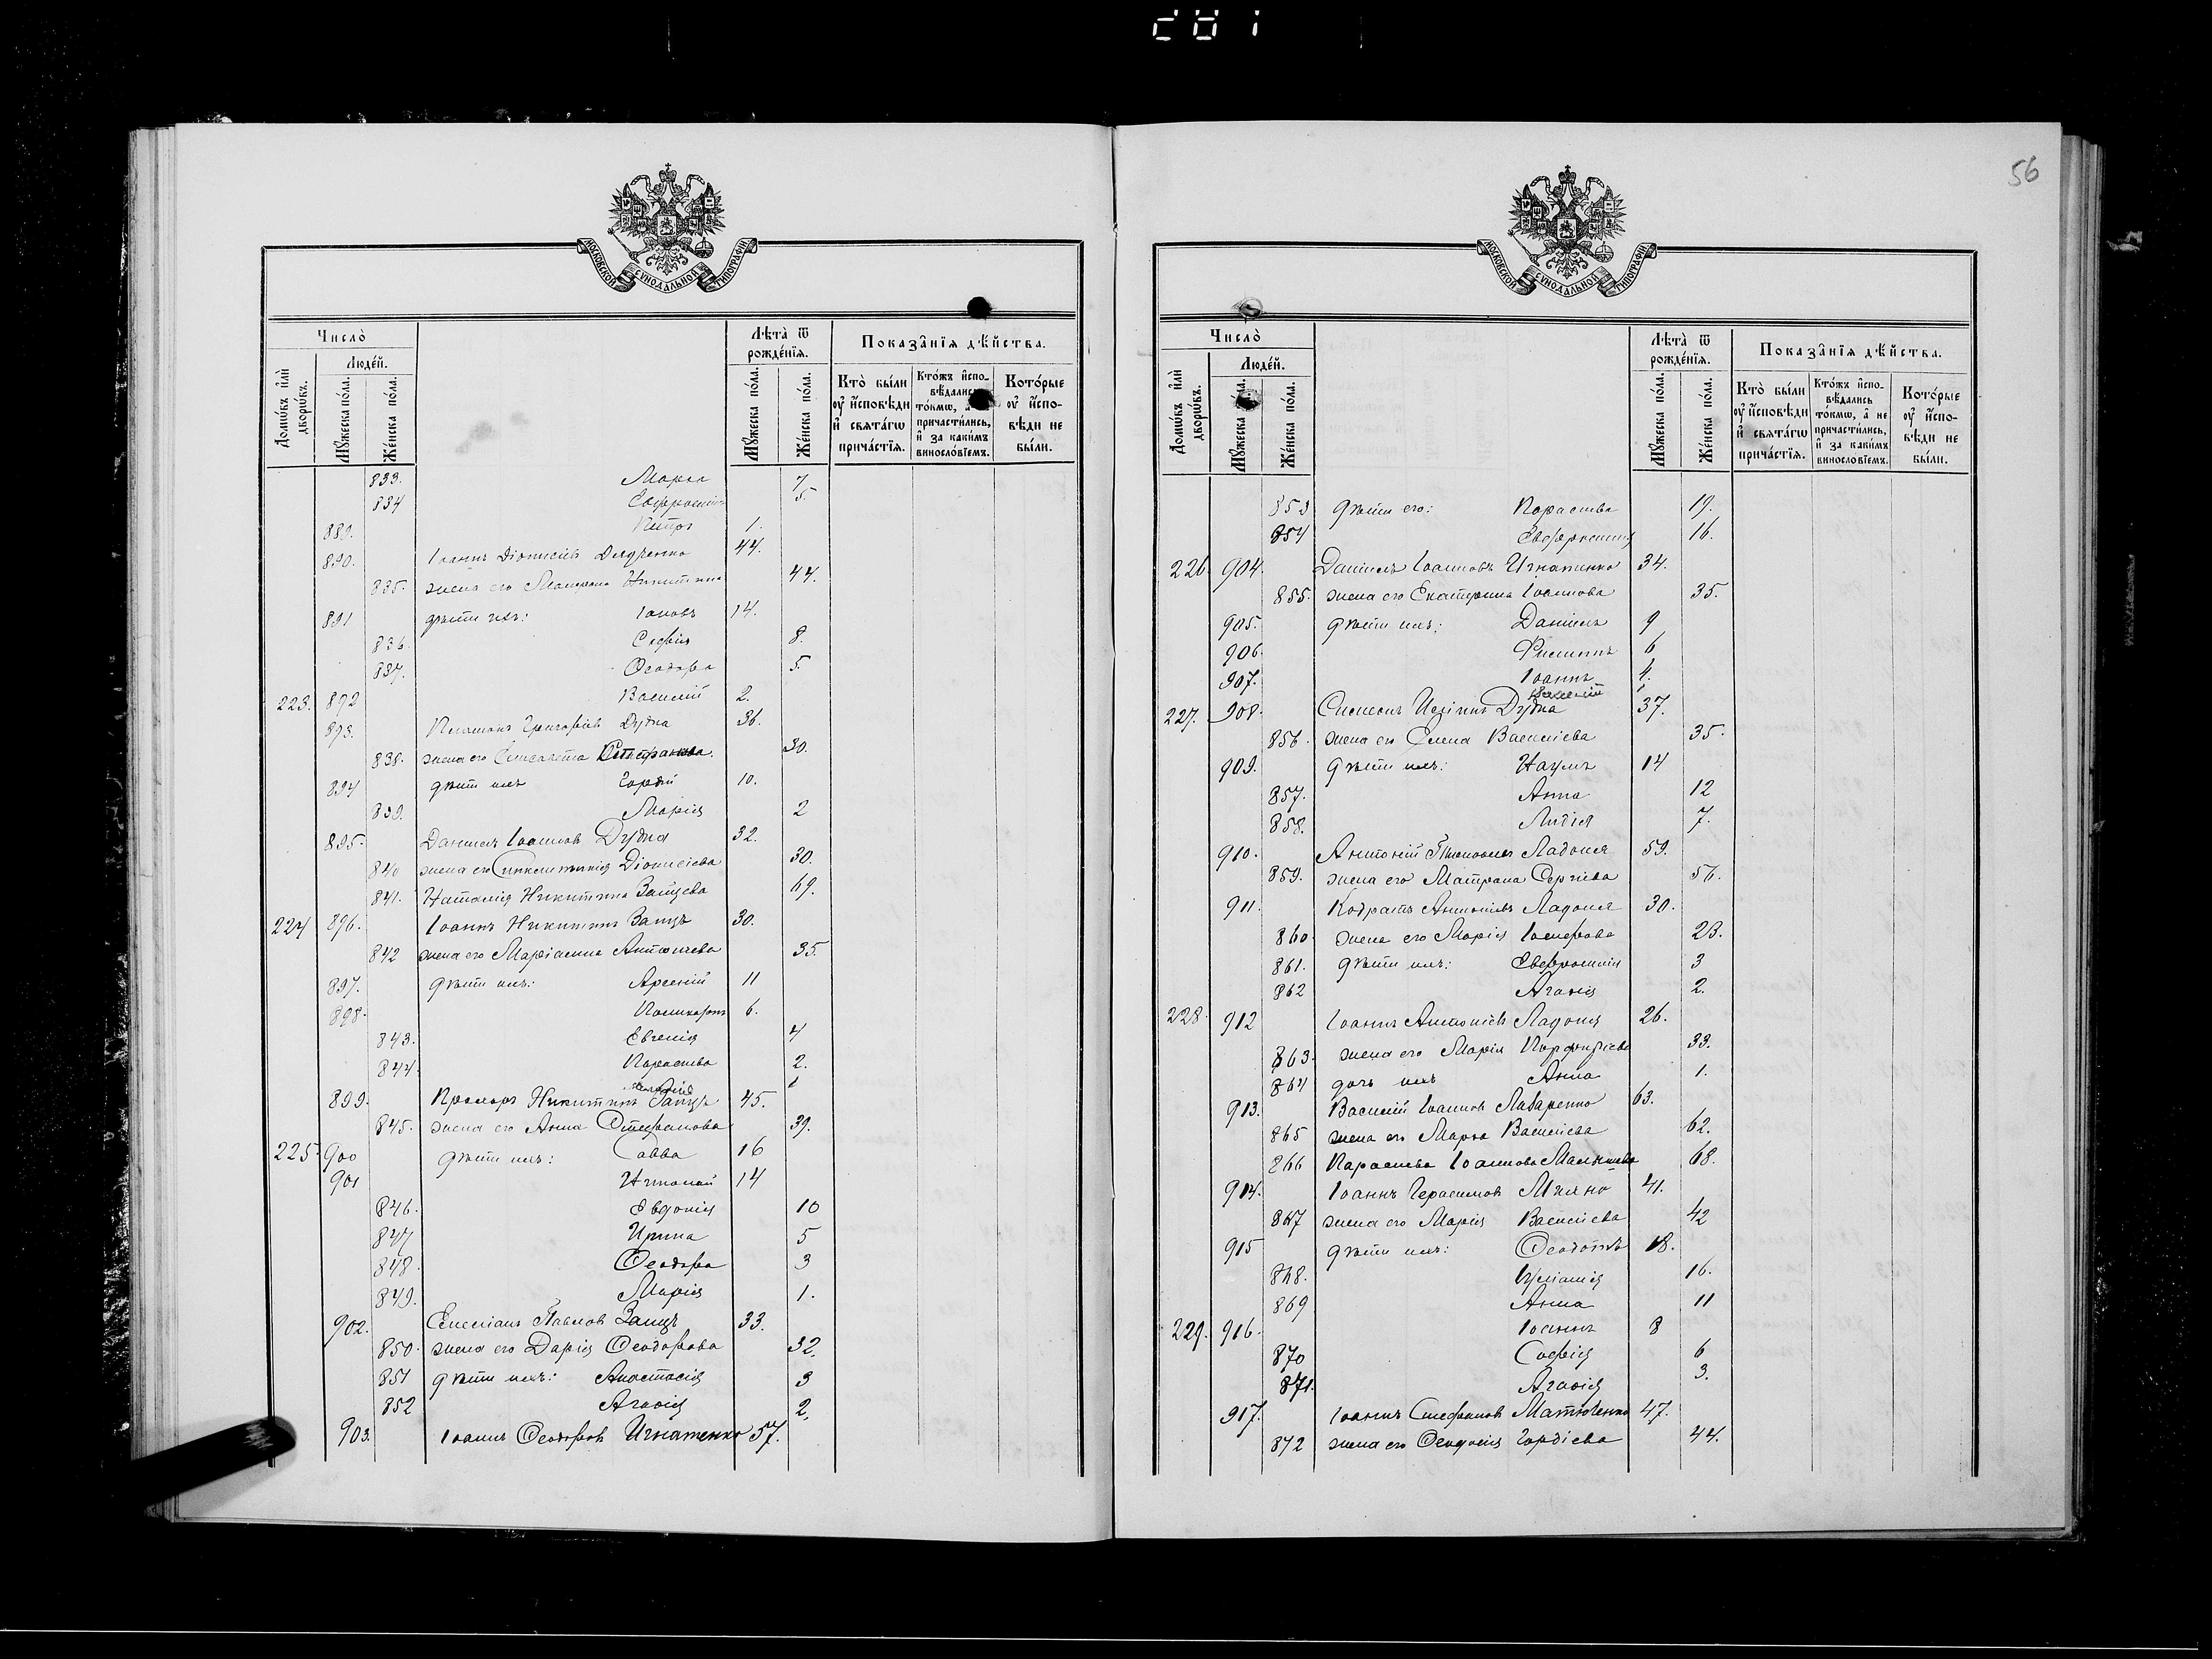 56
МОСКОВСКОЙ СѴНОДАЛЬНОЙ ТИПОГРАФІИ
Число̀
Людéй.
Домѡ́въ и҆лѝ дворѡ́въ.
Мꙋ́жеска по́ла.
Же́нска по́ла.
Лѣ́та ѿ рожде́нїѧ.
Мꙋ́жеска по́ла.
Же́нска по́ла.
Показа̂нїѧ дѣ́йства.
Кто̀ бы́ли ᲂу҆ и҆сповѣди и҆ свята́гѡ прича́стїѧ.
Кто́жъ и҆сповѣ́дались то́кмѡ, а҆
причасти́лись, и҆ за каки́мъ винословїемъ.
Кото́рые ᲂу҆ и҆сповѣди не бы́ли.
833. Марѳа 7
834 Евфросинія 5
889. Петръ 1.
890. Іоаннъ Діонисіевъ 44.
835. жена его Матрона Никитина 44.
891 дѣти ихъ: Іаковъ 14.
836. Софія 8.
837. Ѳеодора 5.
223. 892 Василій 2.
893. Григоріевъ Дудка 36.
838. жена его Елисавета 30.
894 дѣти ихъ Гордій 10.
839. Марія 2
895. Даніилъ Іоанновъ Дудка 32.
840 жена его Синклитикія Діонисіева 30.
841. Наталія Никитина Заицева 69.
224 896. Іоаннъ Никитинъ Заицъ 30.
842 жена его Маріанна Антоніева 35.
897. дѣти ихъ: Арсеній 11
898. Поликарпъ 6.
843. Евгенія 4
844. Параскева 2.
1
899. Прохоръ Никитинъ Заицъ 45.
845. жена его Анна Стефанова 39.
225 900 дѣти ихъ: Савва 16
901 Николай 14
846. Евдокія 10
847 Ирина 5
848. Ѳеодора 3
849. Марія 1.
902. Емеліанъ Павловъ Заицъ 33.
850. жена его Дарія Ѳеодорова 32.
851 дѣти ихъ: Анастасія 3
852 Агаѳія 2.
903. Іоаннъ Ѳеодоровъ Игнатенко 57.
МОСКОВСКОЙ СѴНОДАЛЬНОЙ ТИПОГРАФІИ
Число̀
Людéй.
Домѡ́въ и҆лѝ дворѡ́въ.
Мꙋ́жеска по́ла.
Же́нска по́ла.
Лѣ́та ѿ рожде́нїѧ.
Мꙋ́жеска по́ла.
Же́нска по́ла.
Показа̂нїѧ дѣ́йства.
Кто̀ бы́ли ᲂу҆ и҆сповѣди и҆ свята́гѡ прича́стїѧ.
Кто́жъ и҆сповѣ́дались то́кмѡ, а҆ не причасти́лись, и҆ за каки́мъ винословїемъ.
Кото́рые ᲂу҆ и҆сповѣди не бы́ли.
853 дѣти его: Параскева 19.
854 Евфросинія 16.
226. 904. Даніилъ Іоанновъ Игнатенко 34.
855. жена его Екатерина Іоаннова 35.
905. дѣти ихъ: Даніилъ 9
906. Филиппъ 6
907. Іоаннъ 4.
Василій 1
227. 908. Симеонъ Дудка 37.
856. жена его Елена Василіева 35.
909. дѣти ихъ: Наумъ 14
857. Анна 12
858. Лидія 7.
910. Антоній Ладоня 59.
859. жена его Матрона Сергіева 56.
911. Кодратъ Антоніевъ Ладоня 30.
860. жена его Марія Іосифова 23.
861. дѣти ихъ: Евфросинія 3
862 Агаѳія 2.
228. 912 Іоаннъ Антоніевъ Ладоня 26.
863. жена его Марія Порфиріева 33.
864 дочь ихъ Анна 1.
913. Василій Іоанновъ Лазаренко 63.
865 жена его Марѳа Василіева 62.
866 Параскева Іоаннова 68.
914. Іоаннъ Герасимовъ 41.
867 жена его Марія Василіева 42
915 дѣти ихъ: Ѳеодотъ 18.
868. Іуліанія 16.
869 Анна 11
229. 916. Іоаннъ 8
870 Софія 6
871. Агаѳія 3.
917. Іоаннъ Стефановъ Матюченко 47.
872 жена его Ѳеодосія Гордіева 44.